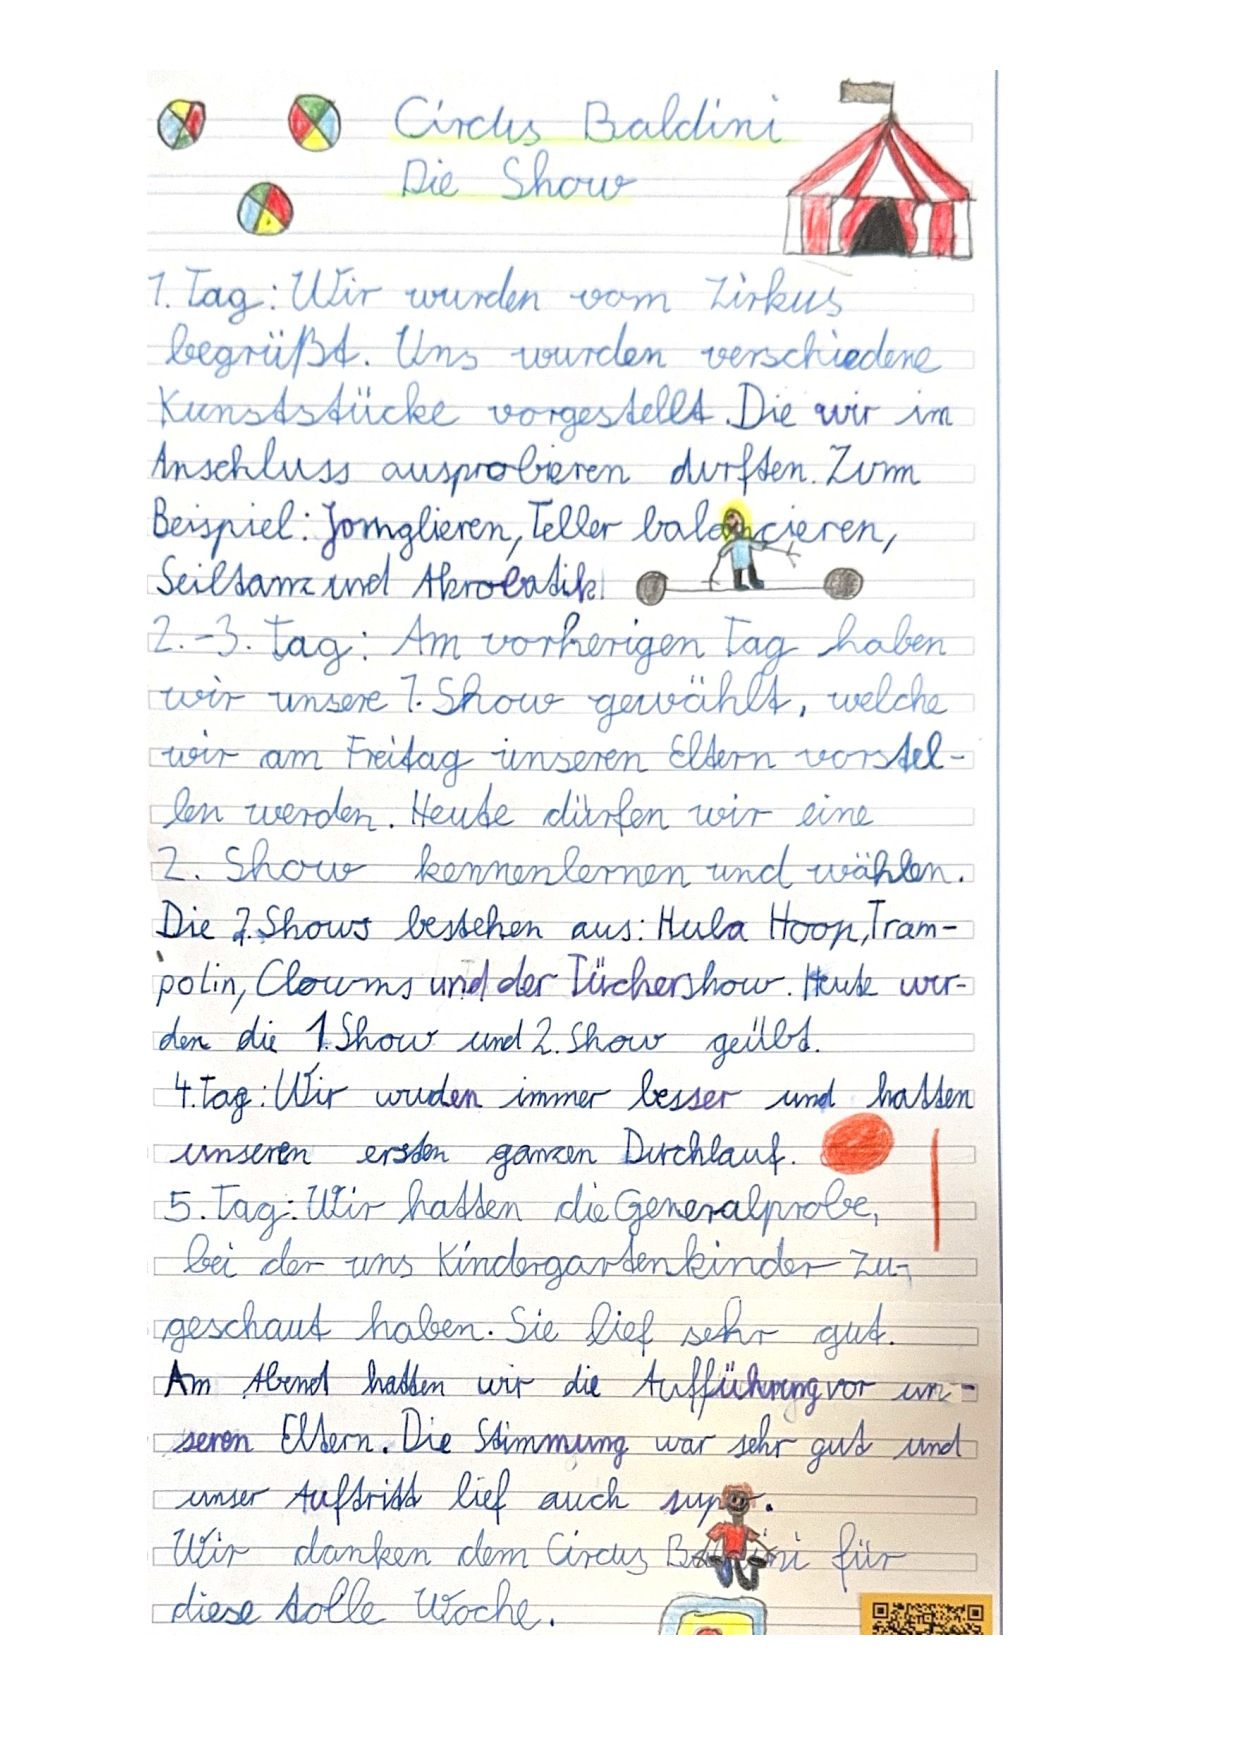 Circus Baldini
Die Show
1. Tag: Wir wurden vom Zirkus
begrüßt. Uns wurden verschiedene
Kunststücke vorgestellt. Die wir im
Anschluss ausprobieren durften. Zum
Beispiel: Jonglieren, Teller balancieren,
Seiltanz und Akrobatik.
2.-3. Tag: Am vorherigen Tag haben
wir unsere 1. Show gewählt, welche
wir am Freitag unseren Eltern vorstel-
len werden. Heute dürfen wir eine
2. Show kennenlernen und wählen.
Die 2. Shows bestehen aus: Hula Hoop, Tram-
polin, Clowns und der Tüchershow. Heute wur-
den die 1. Show und 2. Show geübt.
4. Tag: Wir wuden immer besser und hatten
unseren ersten ganzen Durchlauf.
5. Tag: Wir hatten die Generalprobe,
bei der uns Kindergartenkinder zu-
geschaut haben. Sie lief sehr gut.
Am Abend hatten wir die Aufführung vor un-
seren Eltern. Die Stimmung war sehr gut und
unser Auftritt lief auch super.
Wir danken dem Circus Baldini für
diese tolle Woche.